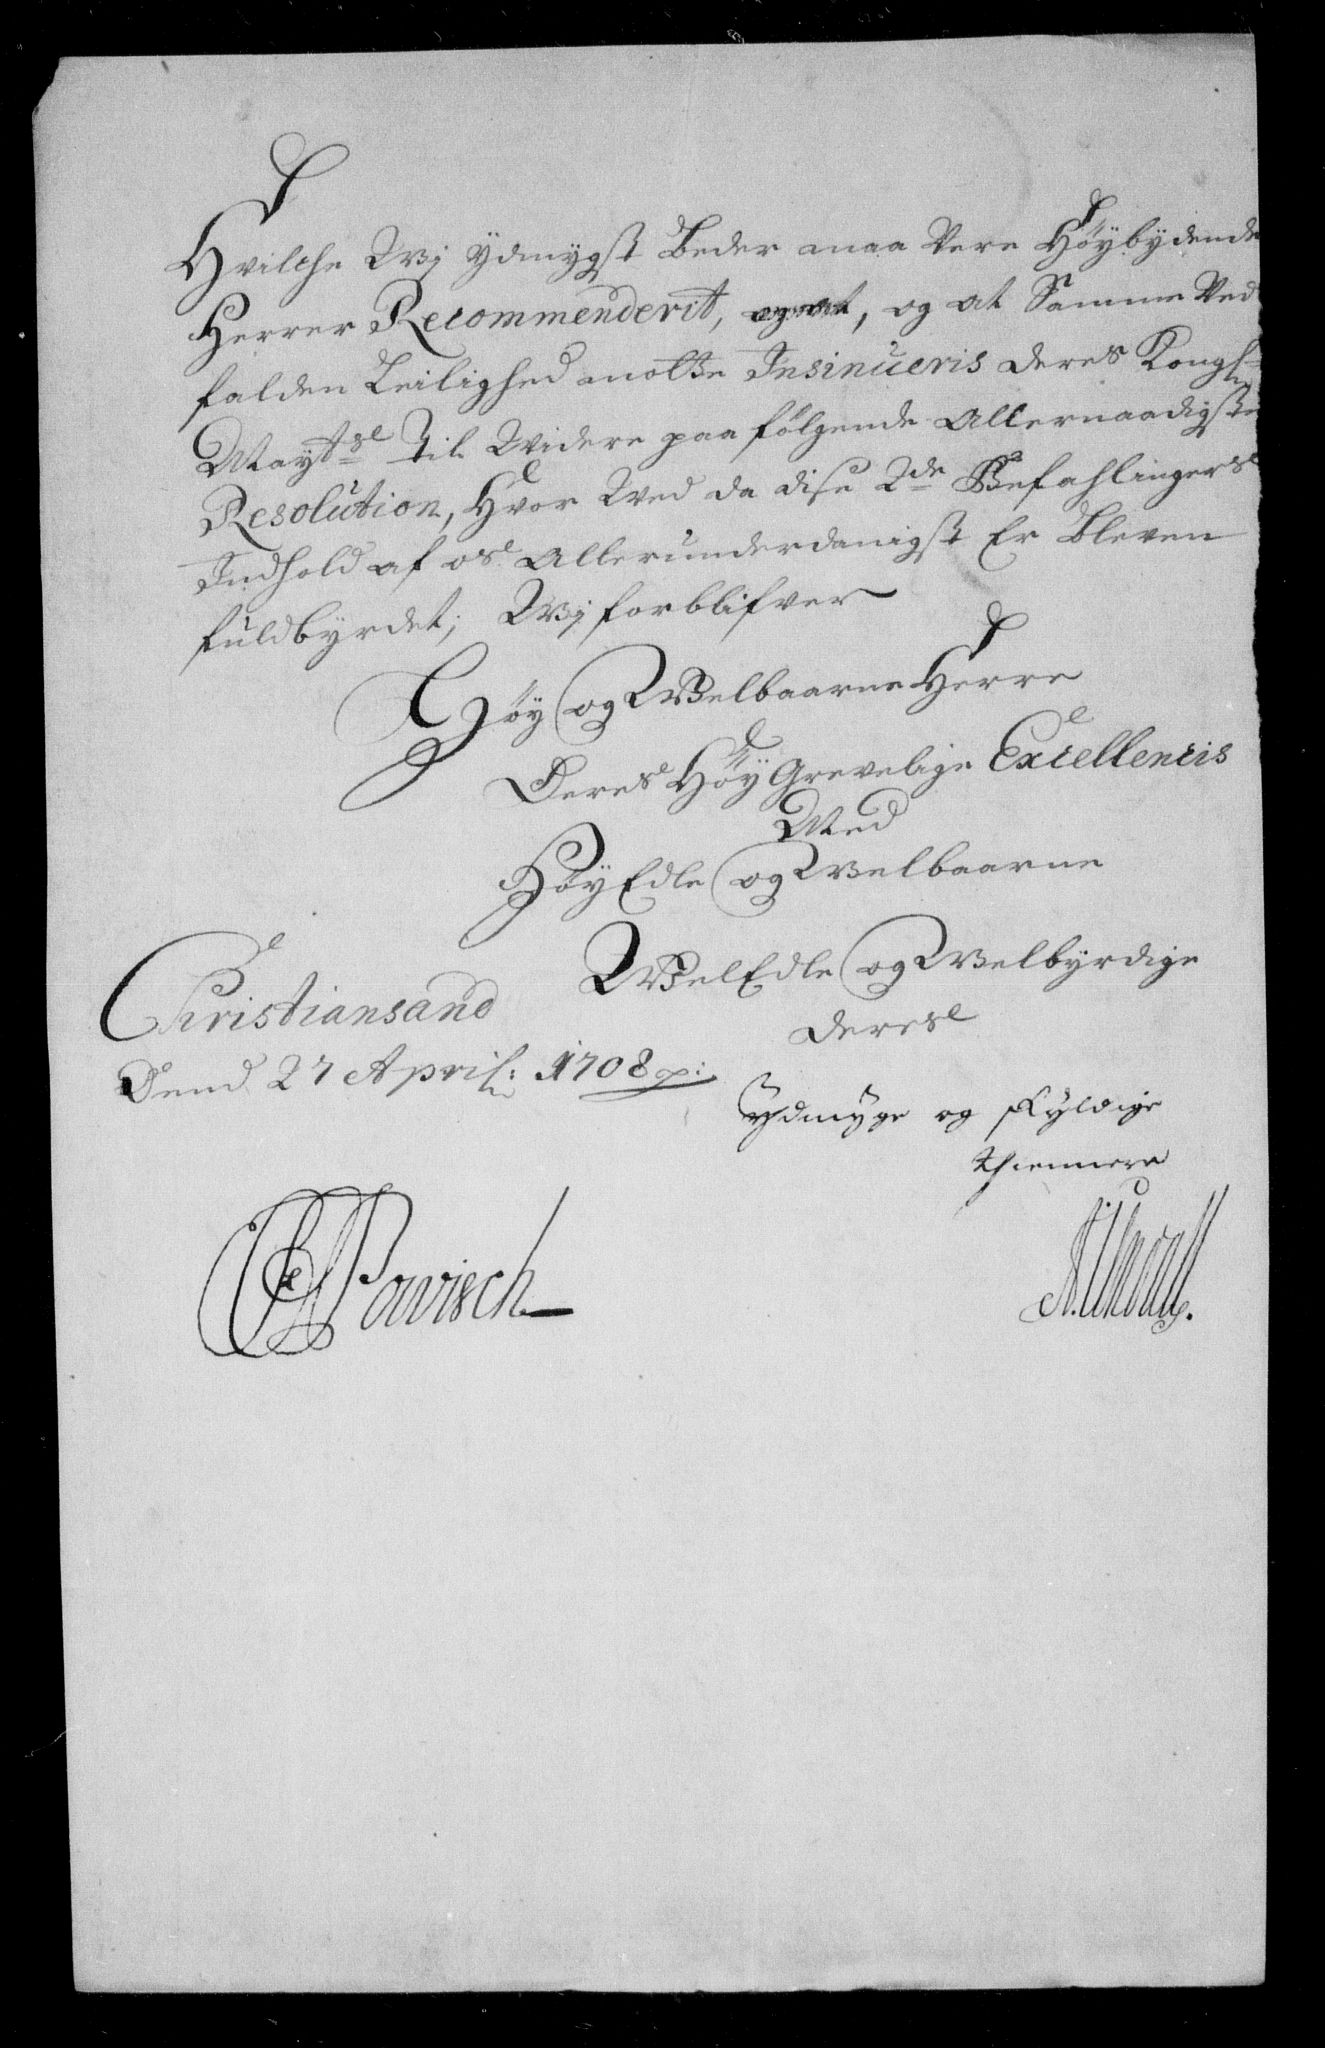 Hvilche Wj Ydmygst Beder maa Vere Høybydende
Herrer Recommenderit, og at Samme Ved
falden Leilighed motte Insinueris Deres Kongl:
Mayts Til Widere paa følgende Allernaadigste
Resolution, Hvor Wed da disse 2de Befahlingers
Indhold af os Allerunderdanigst Er Bleven
fuldbyrdet; Wj forblifver
Høy og Welbaarne Herre
Deres Høy Grevelige Excellencis
Med
Høy Edle og Welbaarne
Wel Edle og Welbyrdige
Deres
Christiansand
Dend 27 April: 1708 p:
Ydmyge og skyldige
thiennere
Powisch